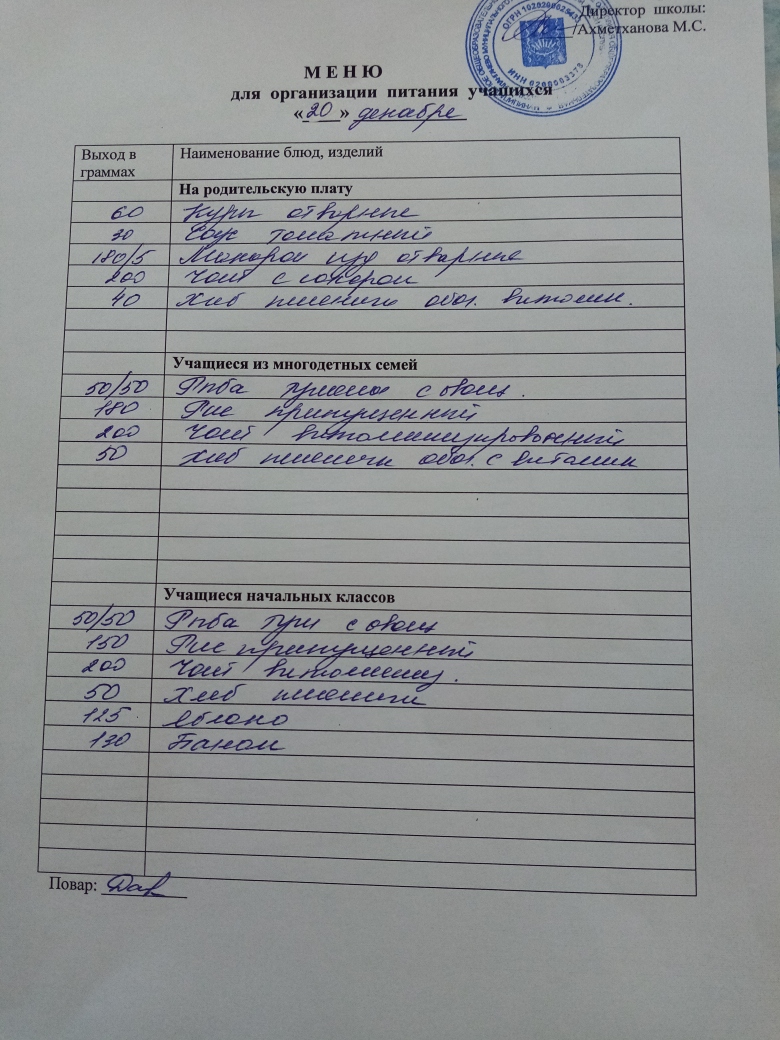 Директор школы:
/Ахметханова М.С.
МЕНЮ
для организации питания учащихся
«20» декабре
Выход в граммах Наименование блюд, изделий
На родительскую плату
60 Куры отварные
30 Соус томатный
180/5 Макарон изд отварные
200 Чай с сахаром
40 Хлеб пшенич обог. витамин.
Учащиеся из многодетных семей
50/50 Рыба тушен с овощ.
180 Рис припущенный
200 Чай витаминизированный
50 Хлеб пшеничн обог. с витамин
Учащиеся начальных классов
50/50 Рыба туш с овощ
150 Рис припущенный
200 Чай витаминиз.
50 Хлеб пшенич
125 Яблоко
130 Банан
Повар: